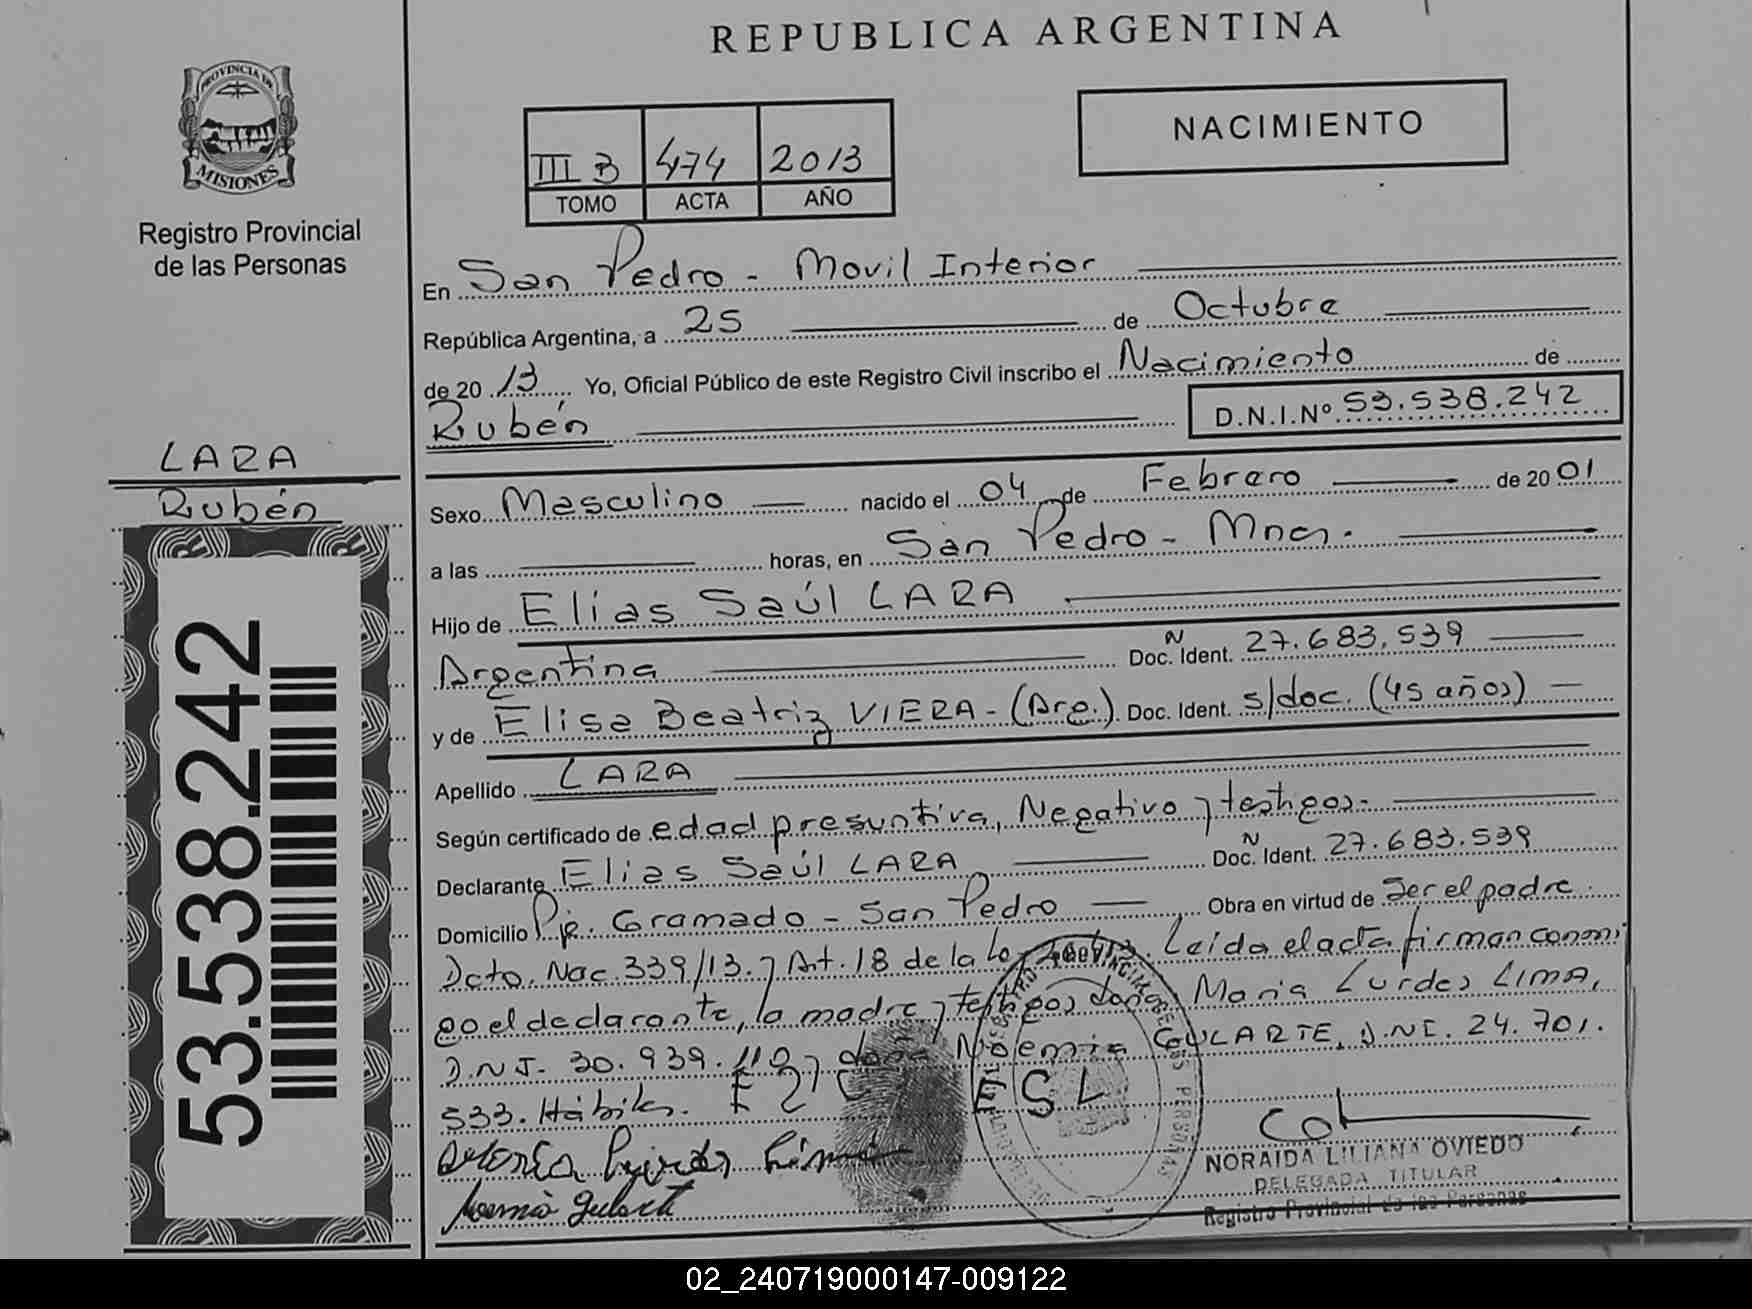 REPUBLICA ARGENTINA
PROVINCIA DE
MISIONES
Registro Provincial
de las Personas
III B 474 2013
TOMO ACTA AÑO
NACIMIENTO
En San Pedro - Movil Interior
República Argentina, a 25 de Octubre
de 20 13 Yo, Oficial Público de este Registro Civil inscribo el Nacimiento de
Rubén D.N.I.Nº 53.538.242
LARA
Rubén
53.538.242
Sexo Masculino nacido el 04 de Febrero de 20 01
a las horas, en San Pedro - Mnes.
Hijo de Elias Saúl LARA
Argentina Doc. Ident. N 27.683.539
y de Elisa Beatriz VIERA - (Arg.) Doc. Ident. s/doc. (45 años)
Apellido LARA
Según certificado de edad presuntiva, Negativo y testigos.
Declarante Elias Saúl LARA Doc. Ident. N 27.683.539
Domicilio Pje. Gramado - San Pedro Obra en virtud de Ser el padre.
Dcto. Nac. 339/13. y Art. 18 de la Leida el acta firman conmi
go el declarante, la madre y testigos doña Maria Lurdes LIMA,
D.N.I. 30.939. y doña Noemia GULARTE, D.NI. 24.701.
533. Hábiles.
E S L
NORAIDA LILIANA OVIEDO
DELEGADA TITULAR
Registro Provincial de las Personas
02_240719000147-009122